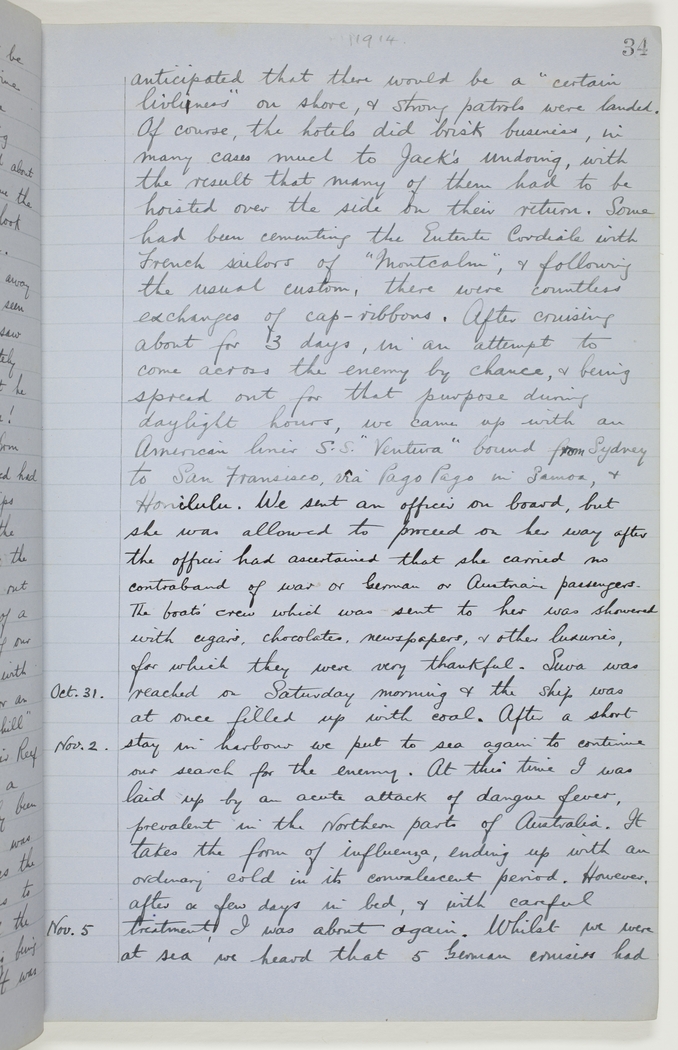 1914.
34
anticipated that there would be a "certain
livliness" on shore, & strong patrols were landed.
Of course, the hotels did brisk business, in
many cases much to Jack's undoing, with
the result that many of them had to be
hoisted over the side on their return. Some
had been cementing the Entente Cordiale with
French sailors of "Montcalm", & following
the usual custom, there were countless
exchanges of cap-ribbons. After cruising
about for 3 days, in an attempt to
come across the enemy by chance, & being
spread out for that purpose during
daylight hours, we came up with an
American liner S.S. "Ventura" bound from Sydney
to San Fransisco, via Pago Pago in Samoa, &
Honilulu. We sent an officer on board, but
she was allowed to proceed on her way after
the officer had ascertained that she carried no
contraband of war or German or Austrian passengers.
The boats' crew which was sent to her was showered
with cigars, chocolates, newspapers, & other luxuries,
for which they were very thankful. Suva was
Oct. 31. reached on Saturday morning & the ship was
at once filled up with coal. After a short
Nov. 2. stay in harbour we put to sea again to continue
our search for the enemy. At this time I was
laid up by an acute attack of dangue fever,
prevalent in the Northern parts of Australia. It
takes the form of influenza, ending up with an
ordinary cold in its convalescent period. However,
after a few days in bed, & with careful
Nov. 5 treatment, I was about again. Whilst we were
at sea we heard that 5 German cruisers had